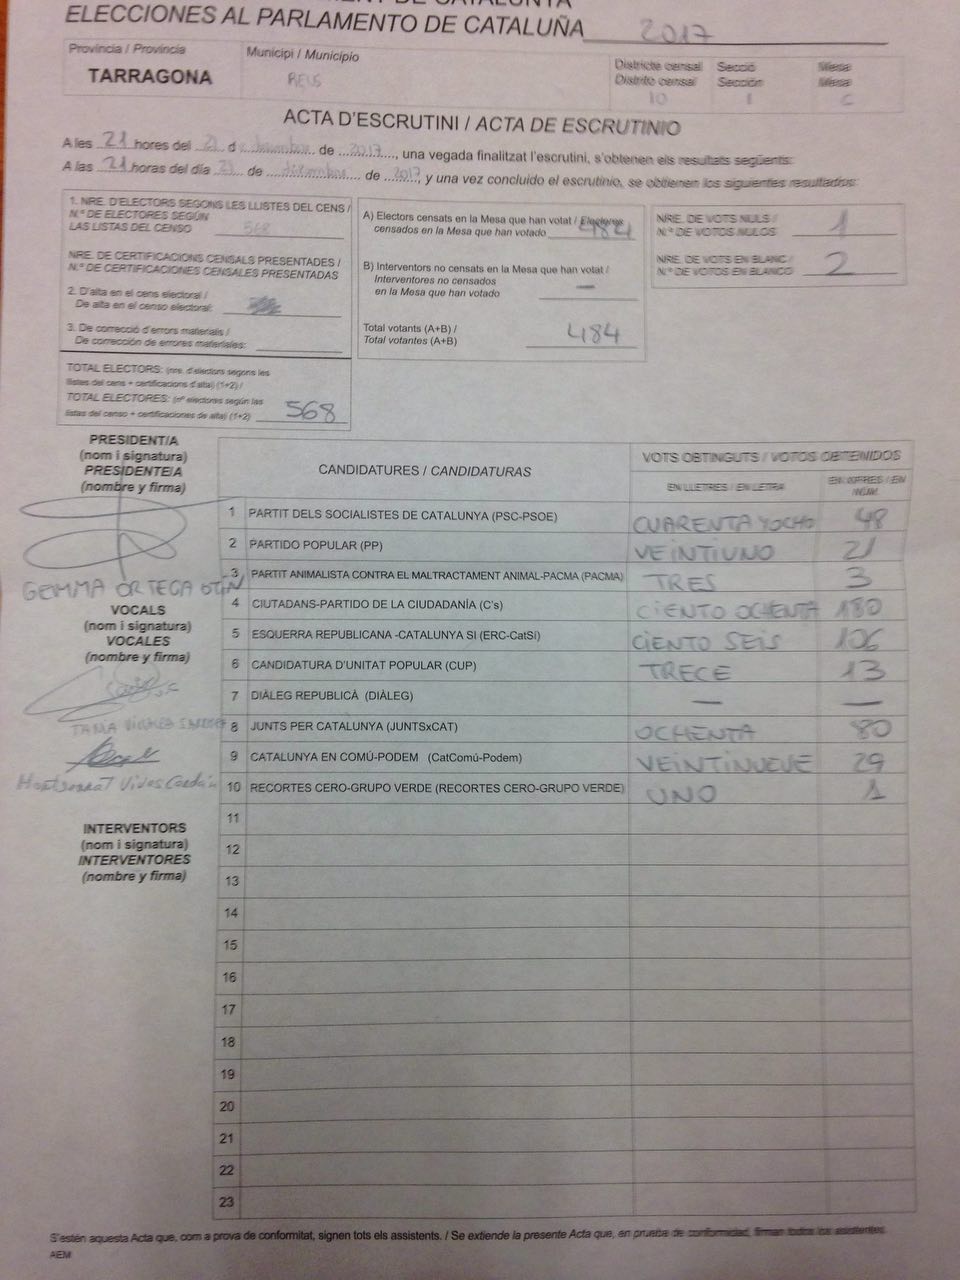 ELECCIONES AL PARLAMENTO DE CATALUÑA 2017
Província / Provincia
TARRAGONA
Municipi / Municipio
REUS
Districte censal
Distrito censal
10
Secció
Sección
1
Mesa
Mesa
C
ACTA D'ESCRUTINI / ACTA DE ESCRUTINIO
A les 21 hores del 21 d desembre de 2017, una vegada finalitzat l'escrutini, s'obtenen els resultats següents:
A las 21 horas del día 21 de diciembre de 2017, y una vez concluido el escrutinio, se obtienen los siguientes resultados:
1. NRE. D'ELECTORS SEGONS LES LLISTES DEL CENS /
N.º DE ELECTORES SEGÚN
LAS LISTAS DEL CENSO 568
NRE. DE CERTIFICACIONS CENSALS PRESENTADES /
N.º DE CERTIFICACIONES CENSALES PRESENTADAS
2. D'alta en el cens electoral /
De alta en el censo electoral:
3. De correcció d'errors materials /
De corrección de errores materiales:
TOTAL ELECTORS: (nre. d'electors segons les
llistes del cens + certificacions d'alta) (1+2) /
TOTAL ELECTORES: (nº electores según las
listas del censo + certificaciones de alta) (1+2) 568
A) Electors censats en la Mesa que han votat / Electores
censados en la Mesa que han votado 484
B) Interventors no censats en la Mesa que han votat /
Interventores no censados
en la Mesa que han votado —
Total votants (A+B) /
Total votantes (A+B) 484
NRE. DE VOTS NULS /
N.º DE VOTOS NULOS 1
NRE. DE VOTS EN BLANC /
N.º DE VOTOS EN BLANCO 2
PRESIDENT/A
(nom i signatura)
PRESIDENTE/A
(nombre y firma)
GEMMA ORTEGA
VOCALS
(nom i signatura)
VOCALES
(nombre y firma)
INTERVENTORS
(nom i signatura)
INTERVENTORES
(nombre y firma)
CANDIDATURES / CANDIDATURAS
VOTS OBTINGUTS / VOTOS OBTENIDOS
EN LLETRES / EN LETRA
EN XIFRES / EN NÚM.
1 PARTIT DELS SOCIALISTES DE CATALUNYA (PSC-PSOE) CUARENTA Y OCHO 48
2 PARTIDO POPULAR (PP) VEINTIUNO 21
3 PARTIT ANIMALISTA CONTRA EL MALTRACTAMENT ANIMAL-PACMA (PACMA) TRES 3
4 CIUTADANS-PARTIDO DE LA CIUDADANÍA (C's) CIENTO OCHENTA 180
5 ESQUERRA REPUBLICANA -CATALUNYA SI (ERC-CatSí) CIENTO SEIS 106
6 CANDIDATURA D'UNITAT POPULAR (CUP) TRECE 13
7 DIÀLEG REPUBLICÀ (DIÀLEG) — —
8 JUNTS PER CATALUNYA (JUNTSxCAT) OCHENTA 80
9 CATALUNYA EN COMÚ-PODEM (CatComú-Podem) VEINTINUEVE 29
10 RECORTES CERO-GRUPO VERDE (RECORTES CERO-GRUPO VERDE) UNO 1
11
12
13
14
15
16
17
18
19
20
21
22
23
S'estén aquesta Acta que, com a prova de conformitat, signen tots els assistents. / Se extiende la presente Acta que, en prueba de conformidad, firman todos los asistentes.
AEM